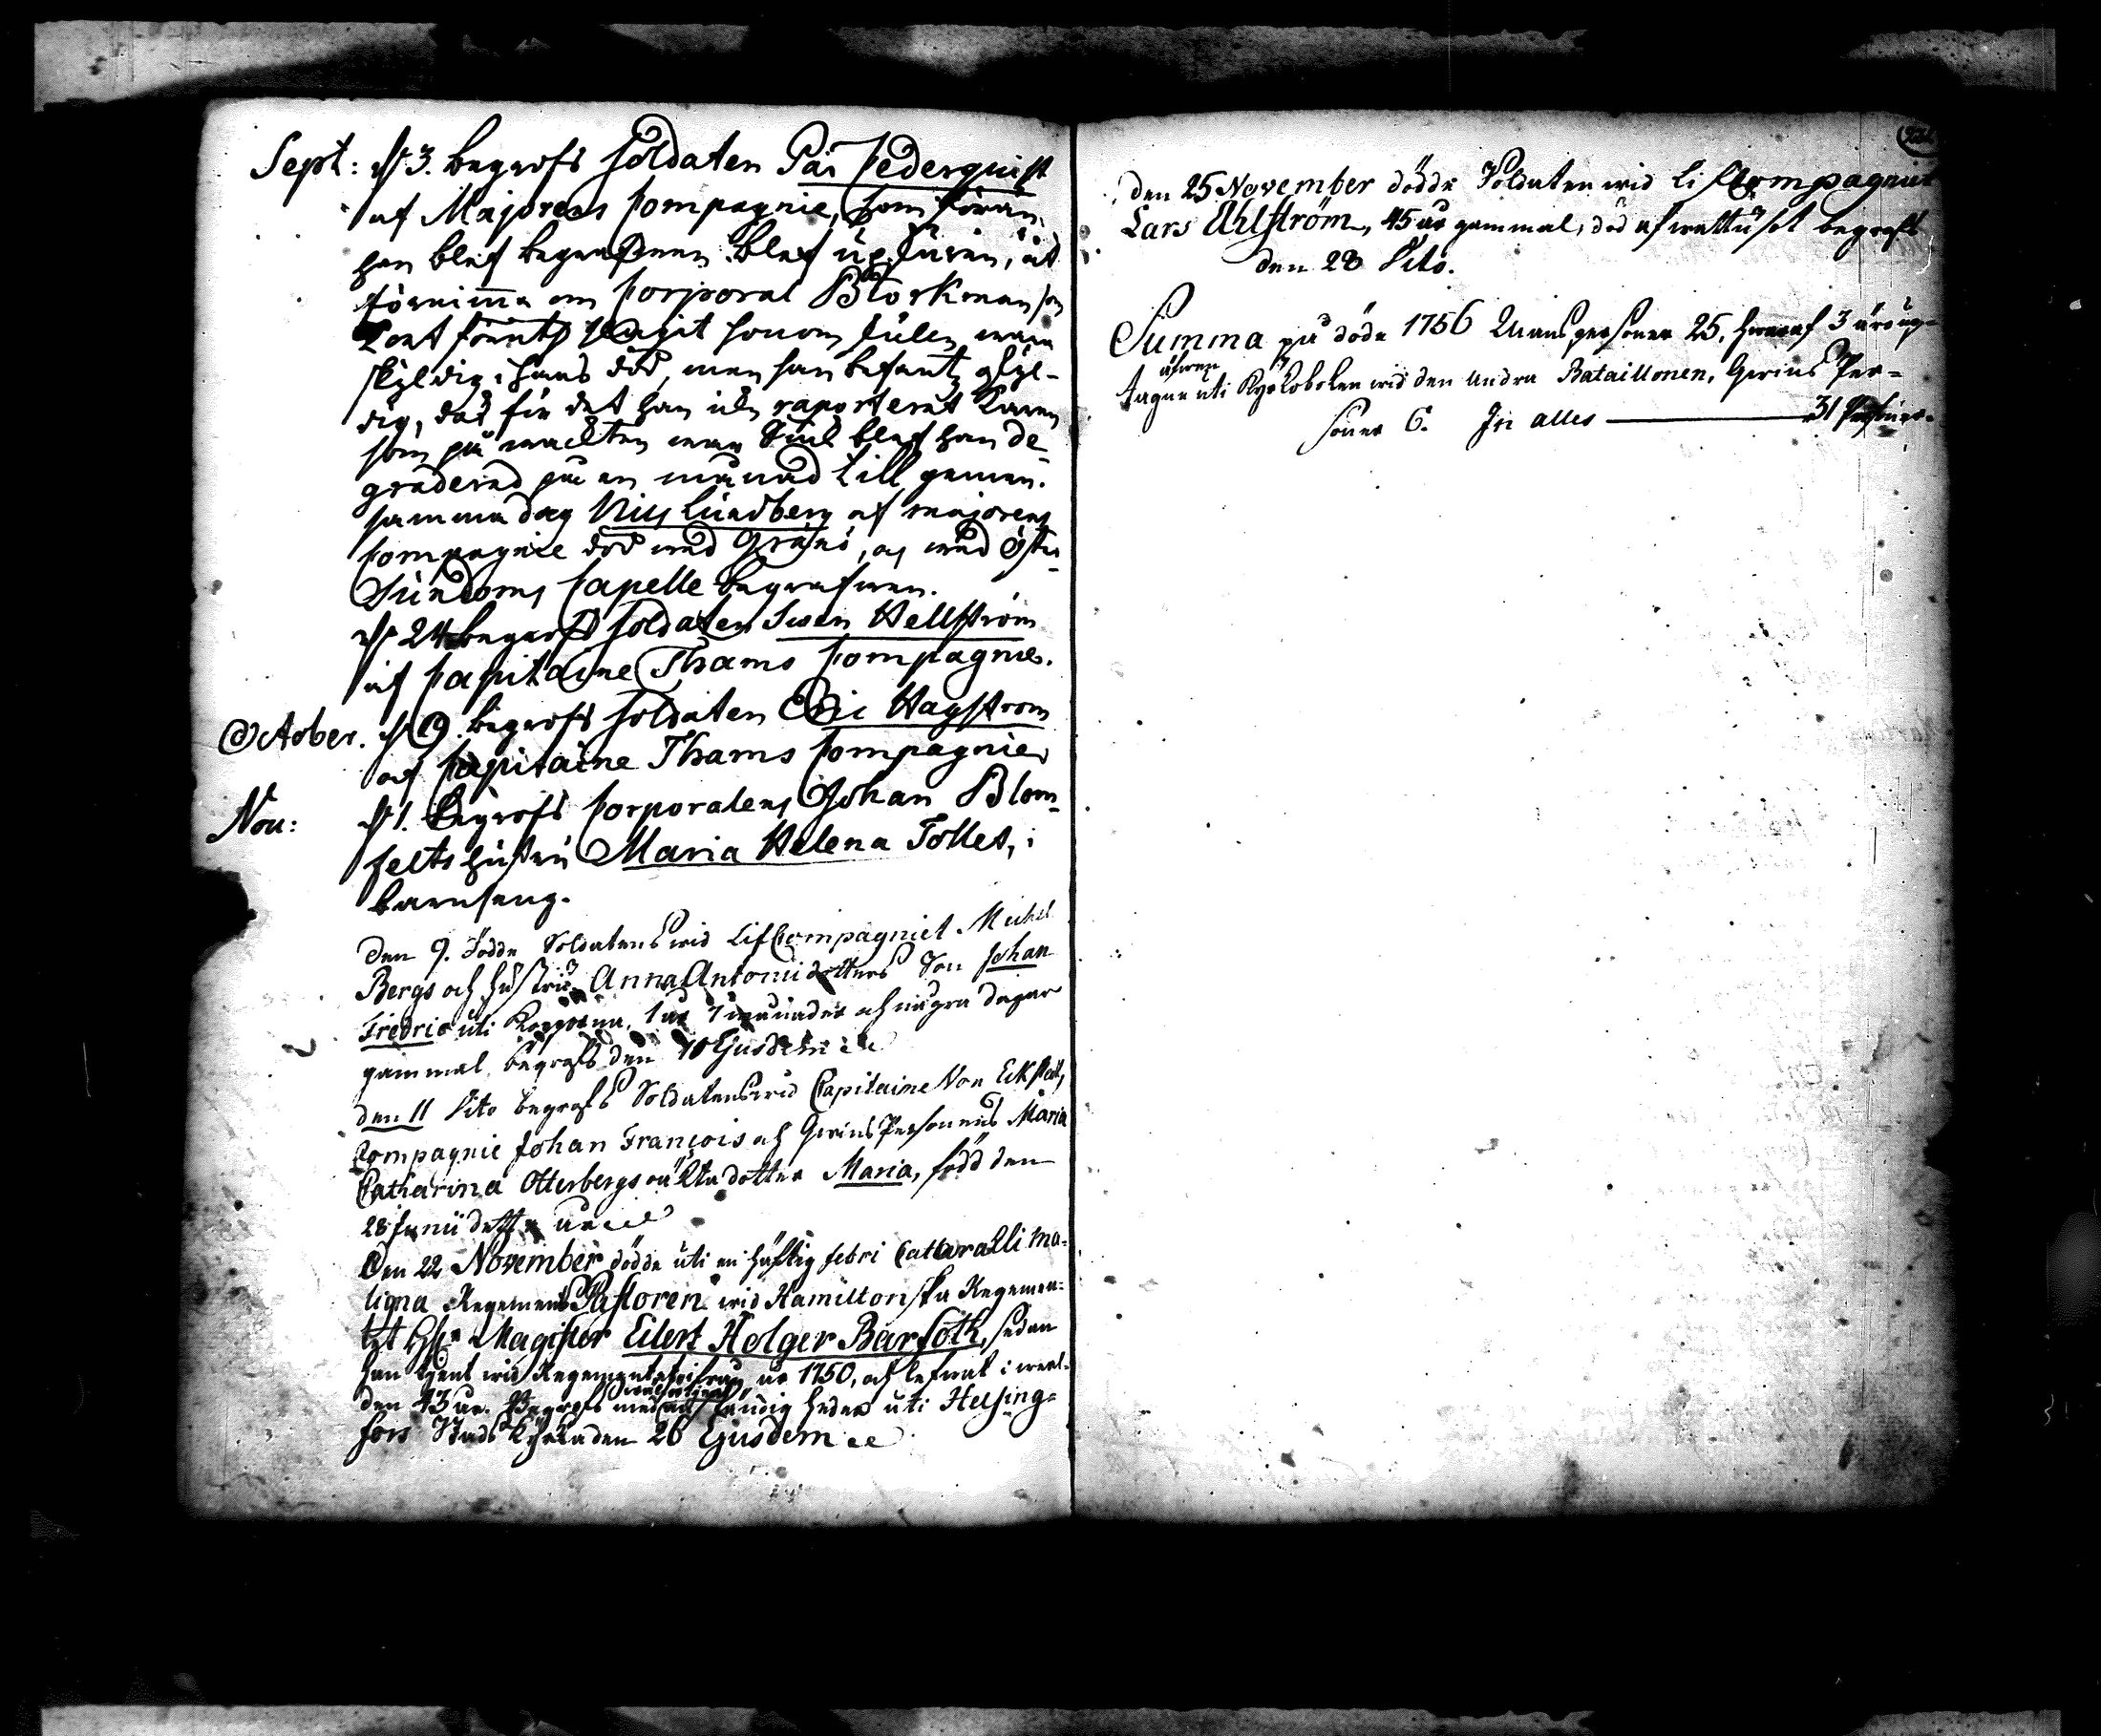 Sept: d 3. begrofs soldaten Pär Cederquist
af Majorens Compagnie, som förän
han blef begrafwen blef upskuren, at
förnimma om Corporal Blockman som
kort förut slagit honom skulle wara
skyldig i hans död, men han befants oskyl-
dig, dock för det han icke raporterat karen
som på wackten war siuk blef han de-
graderad på en månad till gemen.
samma dag Nils Lundberg af majorens
Compagnie död wid Gräsnö, och wid Öster
Sundoms Capelle begrafwen.
d 24 begrofs soldaten Swen Hellström
af Capitaine Thams Compagnie.
October. d 9. begrofs soldaten Eric Hagström
af Capitaine Thams Compagnie
Nov: d 1. begrofs Corporalens Johan Blom-
felts hustru Maria Helena Tollet, i
barnsäng.
Den 9. dödde Soldatens wid LifCompagniet Michel
Bergs och hustrus Anna Antonii dotters Son Johan
Fredric uti Kopporna, 1 år 7 månader och några dagar
gammal, begrofs den 10 Ejusdem
den 11 dito begrofs Soldatens wid Capitaine Von Eckstedts
Compagnie Johan François och Qwins Personens Maria
Catharina Otterbergs oäkta dotter Maria, född den
28 Junii detta år
Den 22 November dödde uti en häftig febri Catarralli ma-
ligna Regements Pastoren wid Hamiltonska Regemen-
tet H:r Magister Eilert Holger Barfoth, sedan
han tjent wid Regementet ifrån år 1750, och lefwat i werl-
den 43 år. Begrofs med anständig heder uti Helsing-
fors Stads Kyrka den 26 Ejusdem
Den 25 November dödde Soldaten wid LifCompagniet
Lars Ahlström, 45 år gammal, död af wattusot begrofs
den 28 dito.
Summa på döde 1756 Manspersoner 25, hwaraf 3 äro up-
äfwen
tagne uti Kyrkoboken wid den andra Bataillonen, Qwins Per-
soner 6. In alles 31 Personer.